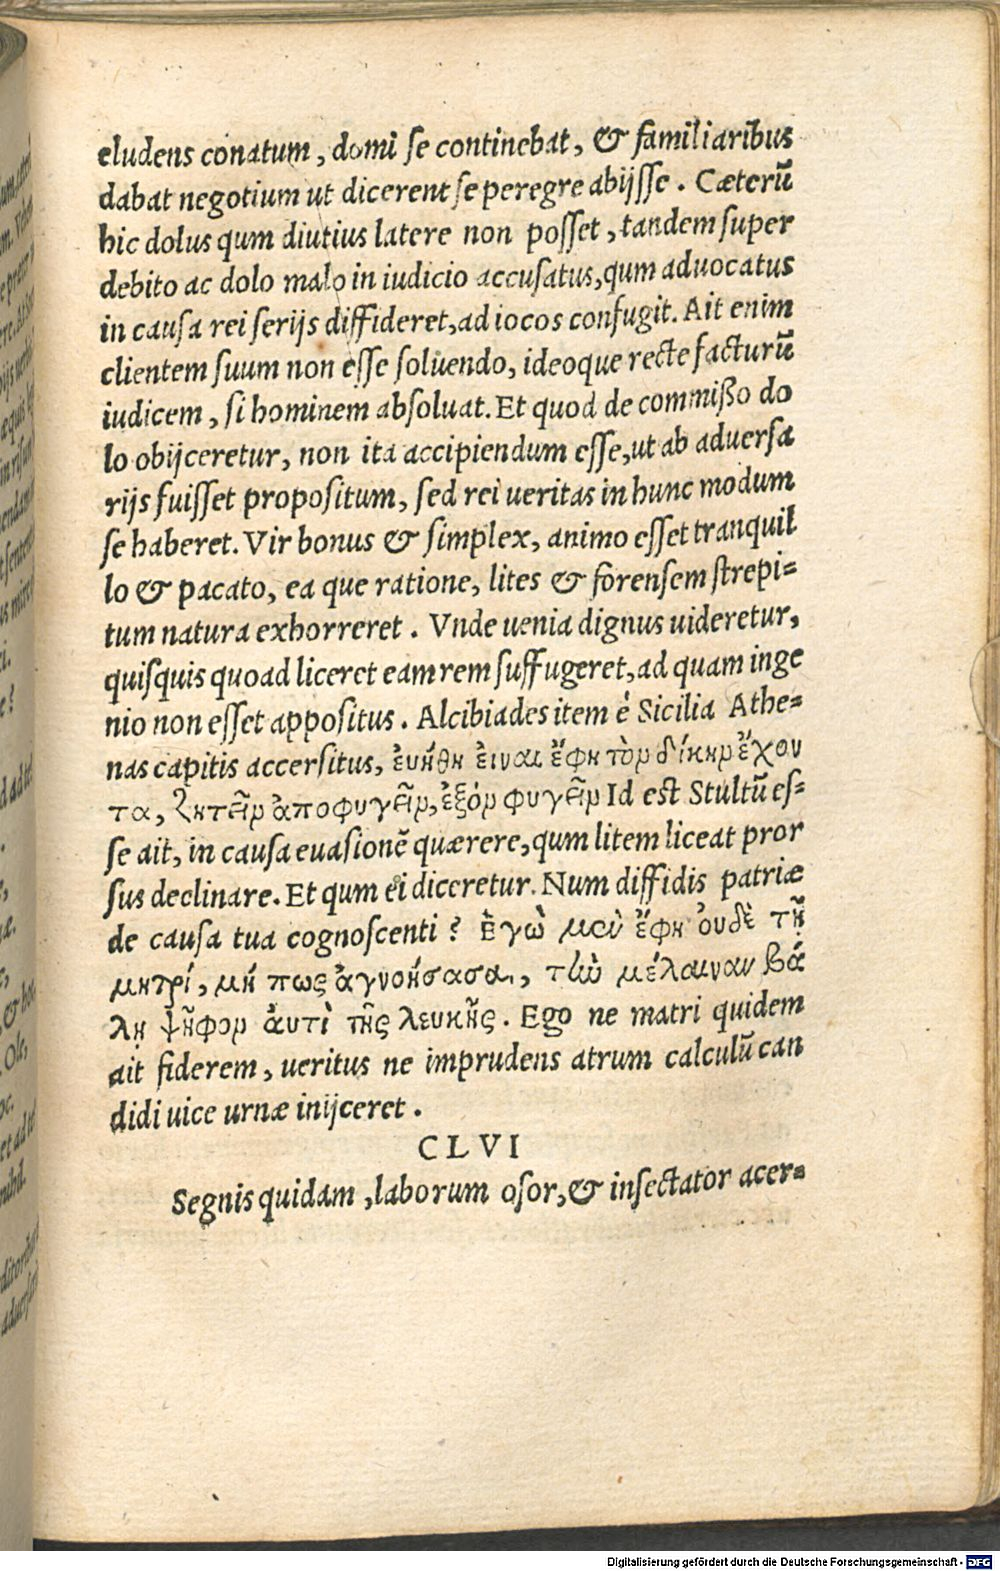 eludens conatum, domi se continebat, & familiaribus
dabat negotium ut dicerent se peregre abijsse. Cæterũ
hic dolus qum diutius latere non posset, tandem super
debito ac dolo malo in iudicio accusatus, qum aduocatus
in causa rei serijs diffideret, ad iocos confugit. Ait enim
clientem suum non esse soluendo, ideoque recte facturũ
iudicem, si hominem absoluat. Et quod de commißo do
lo obijceretur, non ita accipiendum esse, ut ab aduersa
rijs fuisset propositum, sed rei ueritas in hunc modum
se haberet. Vir bonus & simplex, animo esset tranquil
lo & pacato, ea que ratione, lites & forensem strepi=
tum natura exhorreret. Vnde uenia dignus uideretur,
quisquis quoad liceret eam rem suffugeret, ad quam inge
nio non esset appositus. Alcibiades item è Sicilia Athe=
nas capitis accersitus, ἐυήθη ἐιναι ἔφη τὸν δίκην ἔχον
τα, ζητεῖν ἀποφυγεῖν, ἐξόν φυγεῖν Id est Stultũ es=
se ait, in causa euasionẽ quærere, qum litem liceat pror
sus declinare. Et qum ei diceretur. Num diffidis patriæ
de causa tua cognoscenti? Ἐγὼ μὲν ἔφη ὀυδὲ τῇ
μητρί, μή πως ἀγνοήσασα, τὴν μέλαιναν βά
λῃ ψῆφον ἀντὶ τῆς λευκῆς. Ego ne matri quidem
ait fiderem, ueritus ne imprudens atrum calculũ can
didi uice urnæ inijceret.
CLVI
Segnis quidam, laborum osor, & insectator acer=
Digitalisierung gefördert durch die Deutsche Forschungsgemeinschaft - DFG